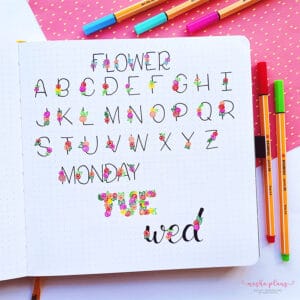 FLOWER
ABCDEFGHI
JKLMNOPQR
STUVWXYZ
MONDAY
TUE
wed
masha plans